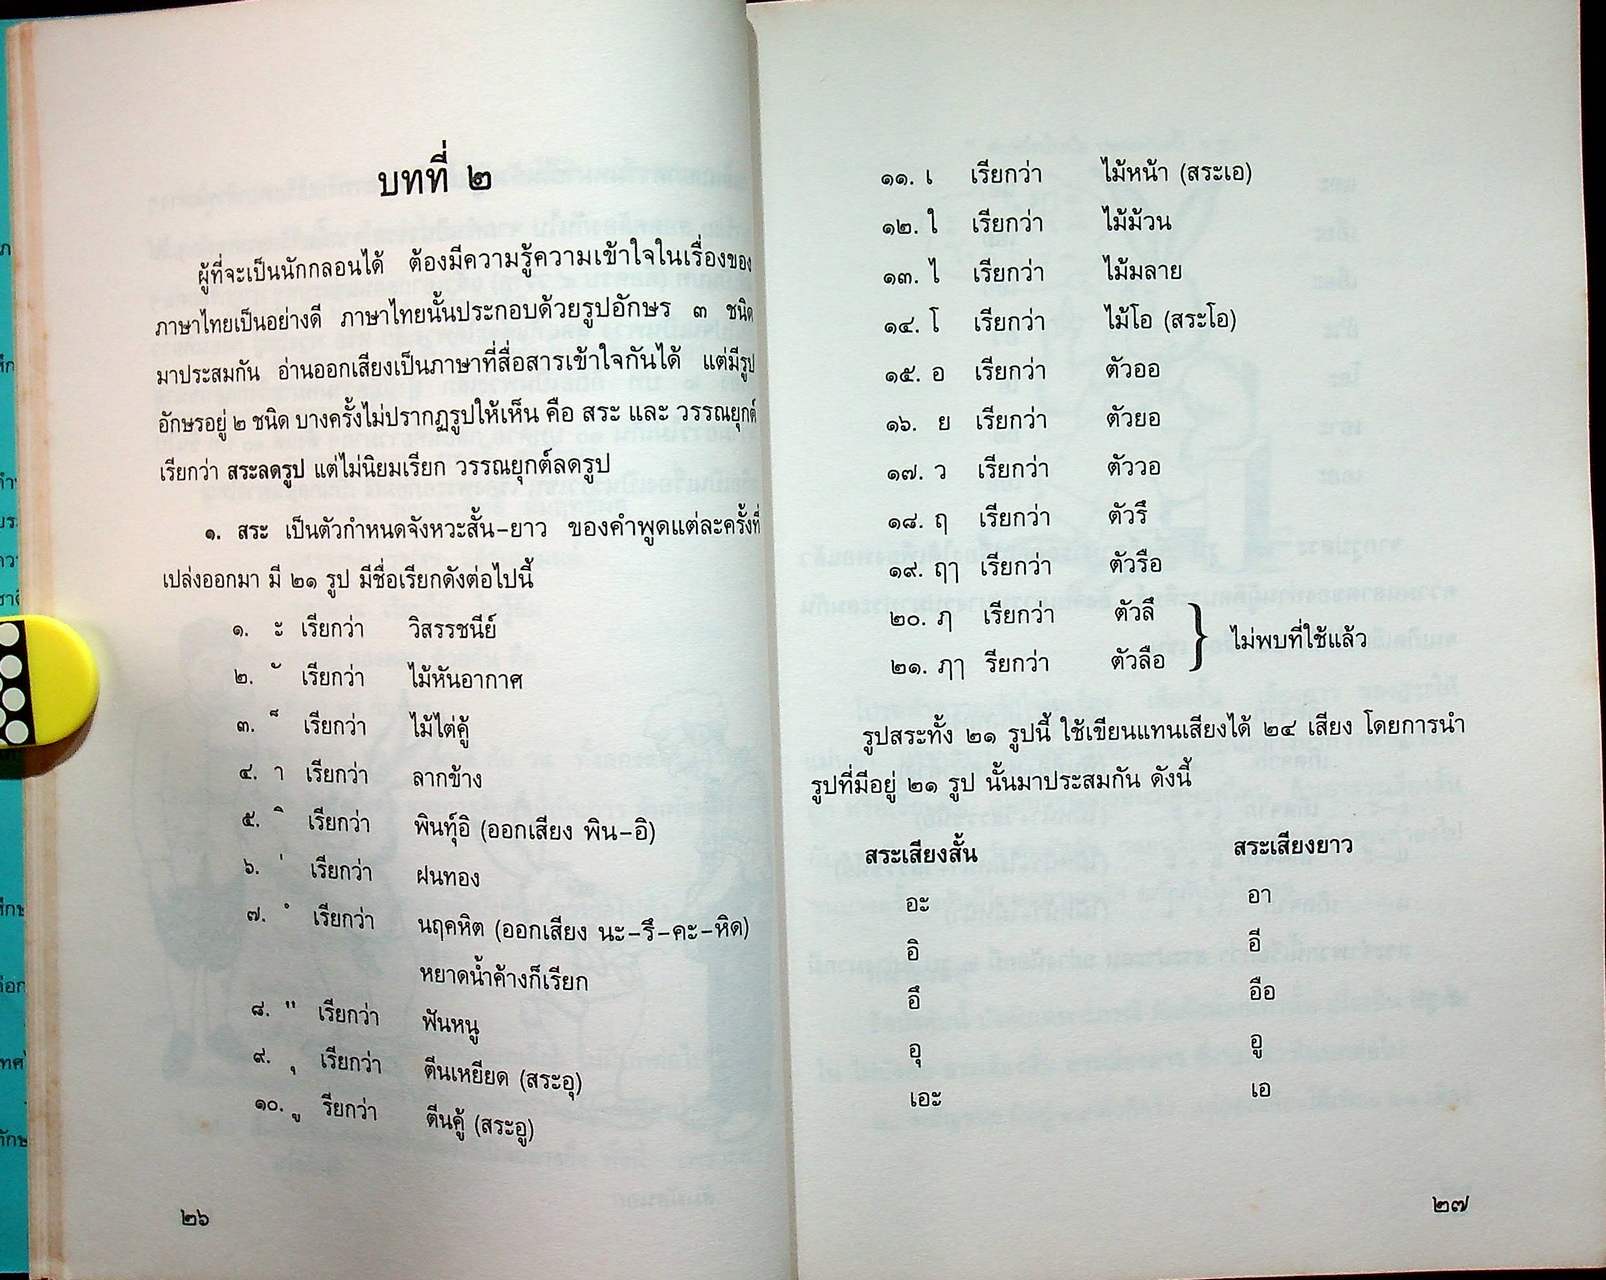 บทที่ ๒
ผู้ที่จะเป็นนักกลอนได้ ต้องมีความรู้ความเข้าใจในเรื่องของ
ภาษาไทยเป็นอย่างดี ภาษาไทยนั้นประกอบด้วยรูปอักษร ๓ ชนิด
มาประสมกัน อ่านออกเสียงเป็นภาษาที่สื่อสารเข้าใจกันได้ แต่มีรูป
อักษรอยู่ ๒ ชนิด บางครั้งไม่ปรากฏรูปให้เห็น คือ สระ และ วรรณยุกต์
เรียกว่า สระลดรูป แต่ไม่นิยมเรียก วรรณยุกต์ลดรูป
๑. สระ เป็นตัวกำหนดจังหวะสั้น-ยาว ของคำพูดแต่ละครั้งที่
เปล่งออกมา มี ๒๑ รูป มีชื่อเรียกดังต่อไปนี้
๑. ะ เรียกว่า วิสรรชนีย์
๒. ั เรียกว่า ไม้หันอากาศ
๓. ็ เรียกว่า ไม้ไต่คู้
๔. า เรียกว่า ลากข้าง
๕. ิ เรียกว่า พินทุ์อิ (ออกเสียง พิน-อิ)
๖. ่ เรียกว่า ฝนทอง
๗. ํ เรียกว่า นฤคหิต (ออกเสียง นะ-รึ-คะ-หิด)
หยาดน้ำค้างก็เรียก
๘. " เรียกว่า ฟันหนู
๙. ุ เรียกว่า ตีนเหยียด (สระอุ)
๑๐. ู รียกว่า ตีนคู้ (สระอู)
๒๖
๑๑. เ เรียกว่า ไม้หน้า (สระเอ)
๑๒. ใ เรียกว่า ไม้ม้วน
๑๓. ไ เรียกว่า ไม้มลาย
๑๔. โ เรียกว่า ไม้โอ (สระโอ)
๑๕. อ เรียกว่า ตัวออ
๑๖. ย เรียกว่า ตัวยอ
๑๗. ว เรียกว่า ตัววอ
๑๘. ฤ เรียกว่า ตัวรึ
๑๙. ฤๅ เรียกว่า ตัวรือ
๒๐. ฦ เรียกว่า ตัวลึ
๒๑. ฦๅ รียกว่า ตัวลือ
ไม่พบที่ใช้แล้ว
รูปสระทั้ง ๒๑ รูปนี้ ใช้เขียนแทนเสียงได้ ๒๔ เสียง โดยการนำ
รูปที่มีอยู่ ๒๑ รูป นั้นมาประสมกัน ดังนี้
สระเสียงสั้น สระเสียงยาว
อะ อา
อิ อี
อึ อือ
อุ อู
เอะ เอ
๒๗